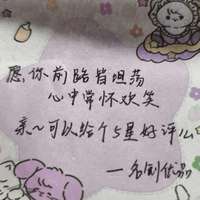 愿你前路皆坦荡
心中常怀欢笑
亲~可以给个5星好评么
——名创优品